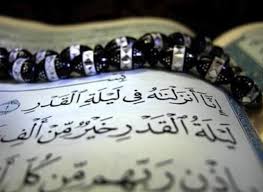 إِنَّا أَنزَلْنَٰهُ فِى لَيْلَةِ الْقَدْرِ ١
لَيْلَةُ الْقَدْرِ خَيْرٌ مِّنْ أَلْفِ
رَبِّهِم مِّن كُلِّ